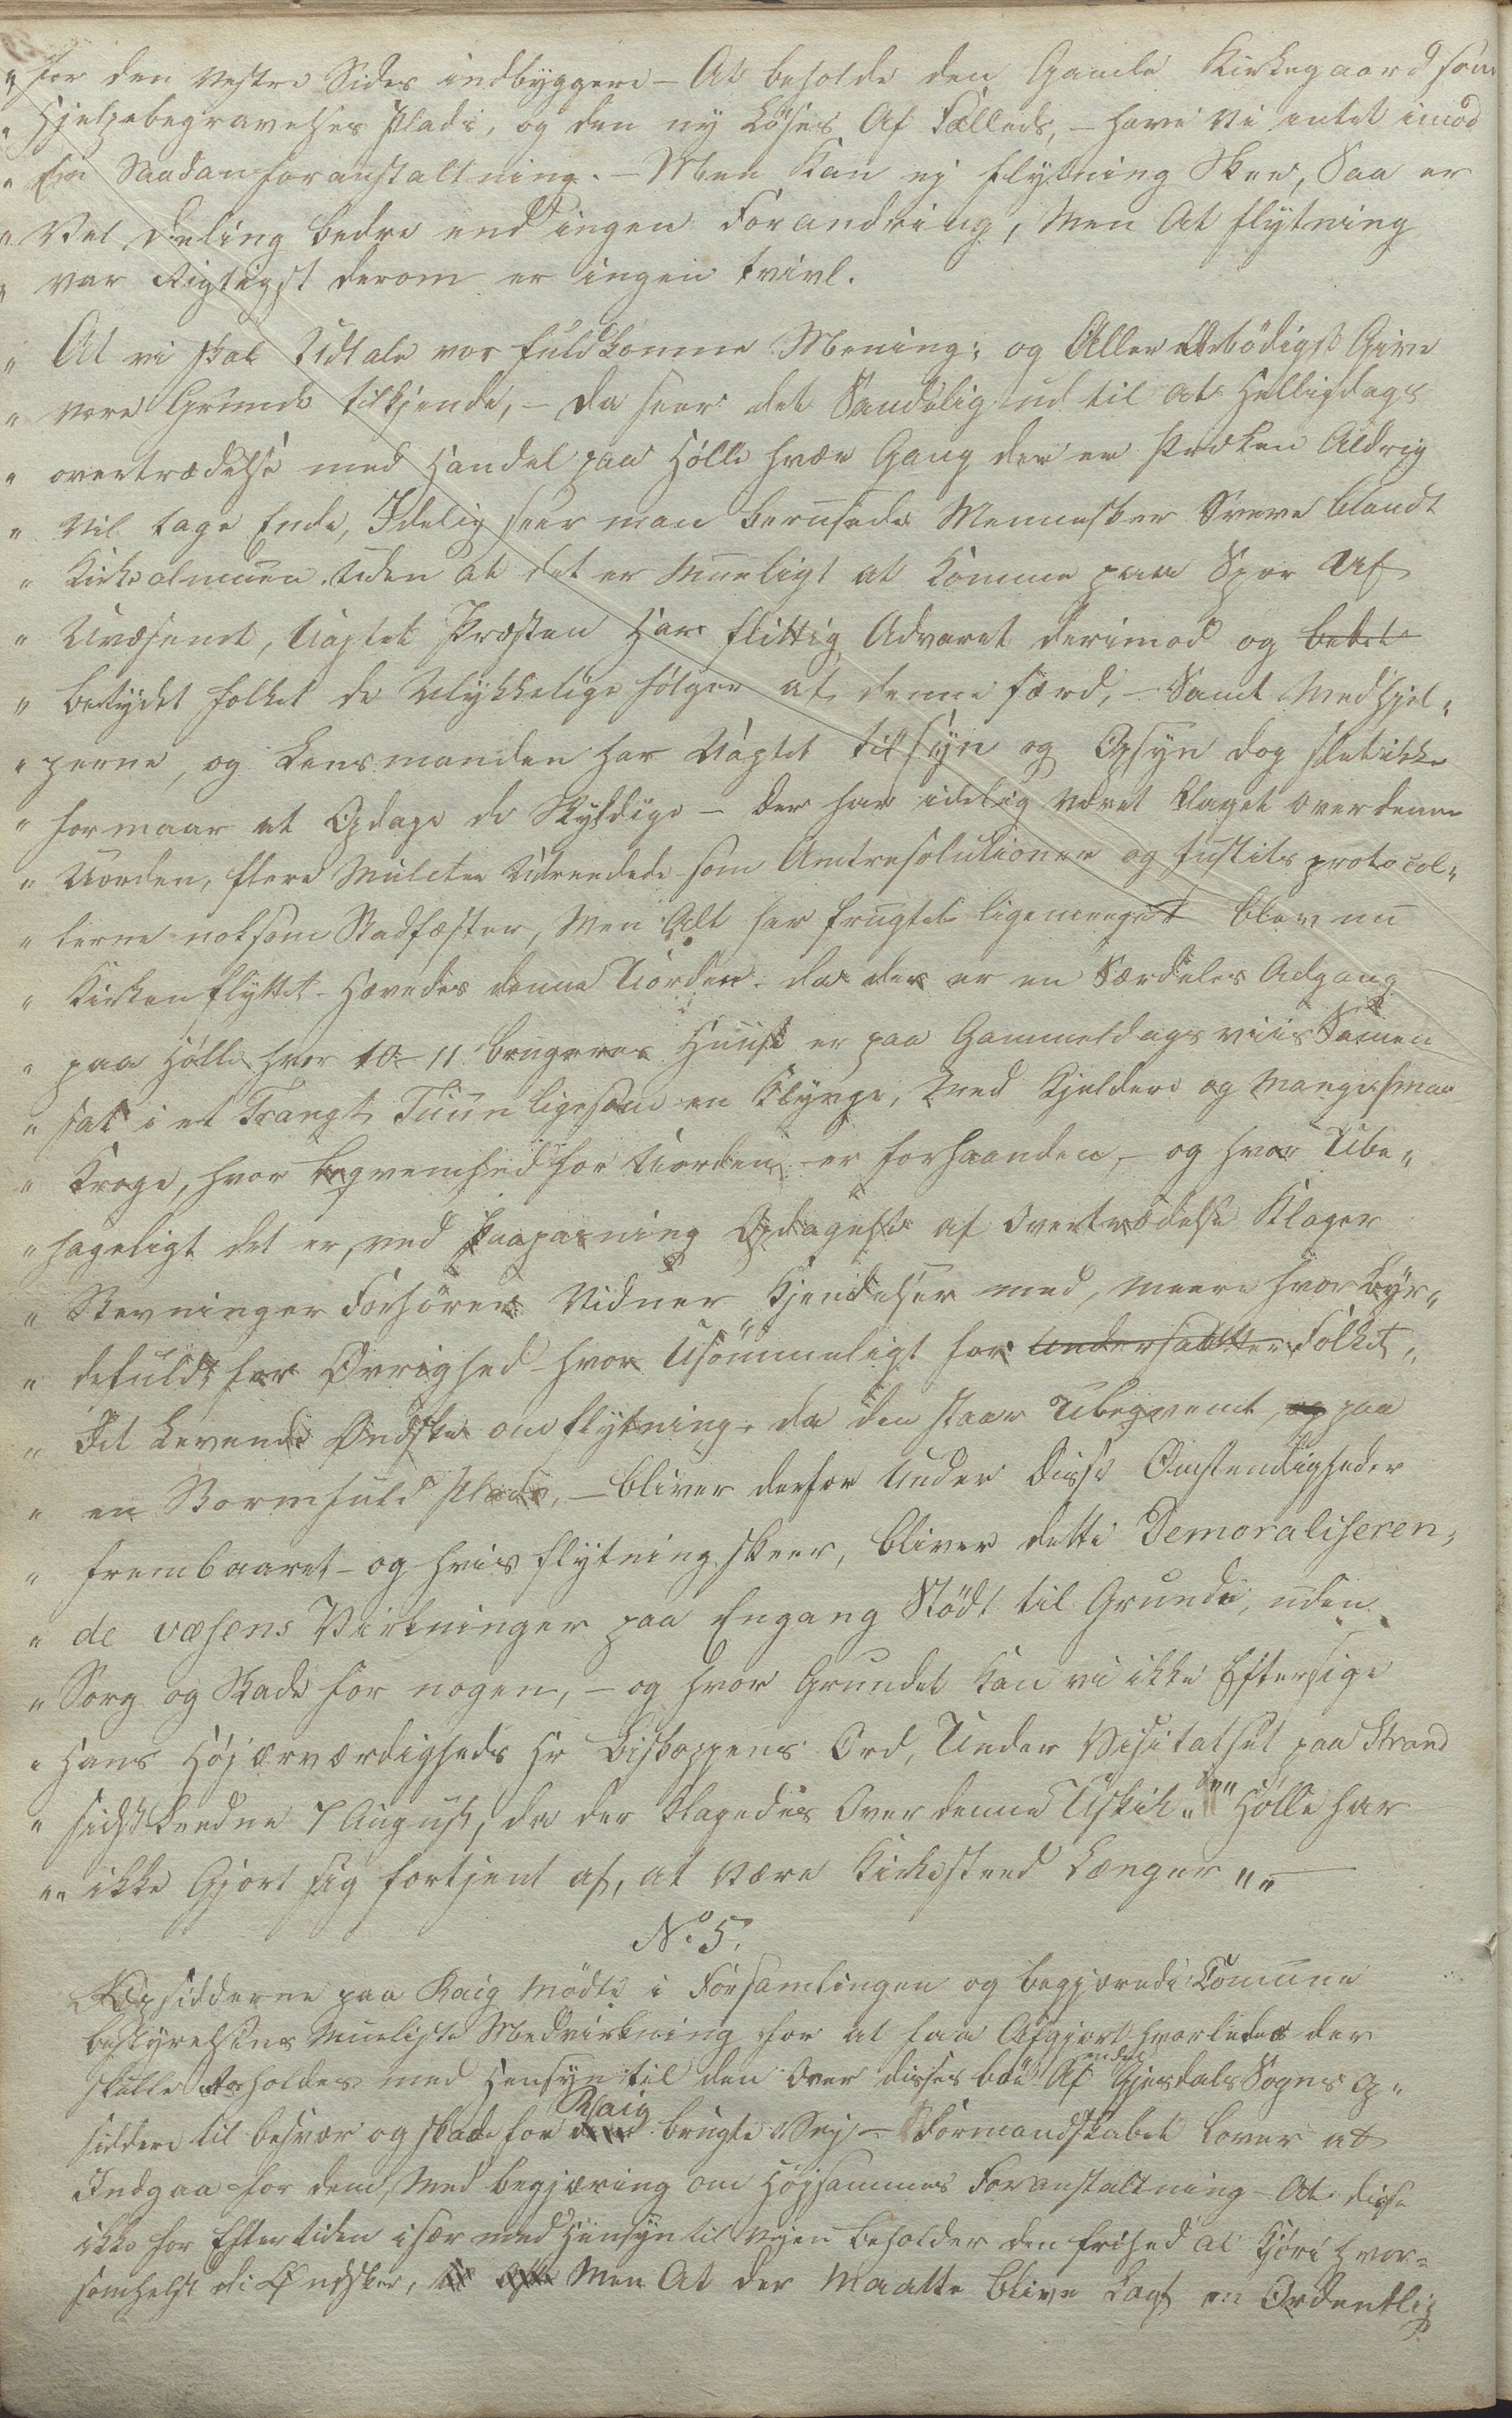 "for den vestre Sides indbyggere – At beholde den Gamle Kirkegaard som
" Hjelpebegravelses Plads, og den ny Løses Af Fælleds, – have Vi intet imod
" En Saadan foranstaltning. – Men Kan ej flytning Skee, Saa er
" Vel Deling bedre end ingen Forandring, Men At flytning
" var Rigtigst derom er ingen tvivl.
" At vi skal Udtale vor fuldkomne Mening; og Allerærbødigst Give
" vore Grunde tilkjende, – da seer det Sandelig ud til at Helligdags
" overtrædelse med Handel paa Hölle hver Gang der er Præken Aldrig
" Vil tage Ende, Idelig seer man berusede Mennesker Sverve blandt
" Kirkealmuen Uden at det er Mueligt at Komme paa Spor Af
" Uvæsenet, Uagtet Præsten Har flittig Advaret derimod og betet
" betydet folket de Ulykkelige følger af denne færd, – Samt Medhjel"
" perne, og Lensmanden har Uagtet tilsyn og Opsyn dog slet ikke
" formaar at Opdage de Skyldige – der har idelig været Klaget over denne
" Uorden, flere Mulcter Udreedede som Amtresolutioner og Justits protocol"
" lerne noksom Stadfæster, Men Alt har frugtet ligemeget blev nu
" Kirken flyttet – Hævedes denne Uorden. da der er en Særdeles Adgang
" paa Hölle hver 10–11 brugeres Huuse er paa Gammeldags viis Samen
" sat i et Trangt Tuun ligesom en Klynge, Med Kjeldere og Mange smaa
" Kroge, hvor beqvemhed for Uorden er forhaanden, – og hvor Ube"
" hageligt det er, ved Paapasning Opdagelse af Overtrædelse Klager
" Stevninger Forhører Vidner Kjendelser med, meere hvor byr"
" defuldt for Øvrighed – hvor Usömmeligt for Undersaatter Folket"
" Det Levende Ønske om flytning, da den staar Ubeqvemt, og paa
" en Stormfuld Plads, – bliver derfor Under disse Omstendigheder
" frembaaret – og hvis flytning skeer, bliver dette Demoraliseren"
" de væsens Virkninger paa Engang Stödt til Grunde, uden
" Sorg og Skade for nogen, – og hvor Grundet Kan vi ikke Eftersige
" Hans Höjærværdigheds Hr Biskoppens Ord, Under Visitatset paa Strand
" sidstleedne 7 August, da der Klagedes Over denne Uskik "" Hölle har
"" ikke Gjort sig fortjent af, at være Kirkesteed Længer "" –
No 5.
Opsidderne paa Kaig Mödte i Forsamlingen og begjærede Comune
bestyrelsens Mueligste Medvirkning for at faa Afgjort hvorledes der
skulle forholdes med Hensyn til den Over disses böe Af Gjesdals Sogns Op"
siddere til besvær og skade for Kaig brugte Vej – Formandskabet lover at
Indgaa for dem, Med begjæring om Höjsammes Foranstaltning – At disse
ikke for Eftertiden især med Hensyn til Vejen beholder den frihed at Kjöre hvor"
somhelst de Ønsker, Men At der Maatte blive Lagt en Ordentlig